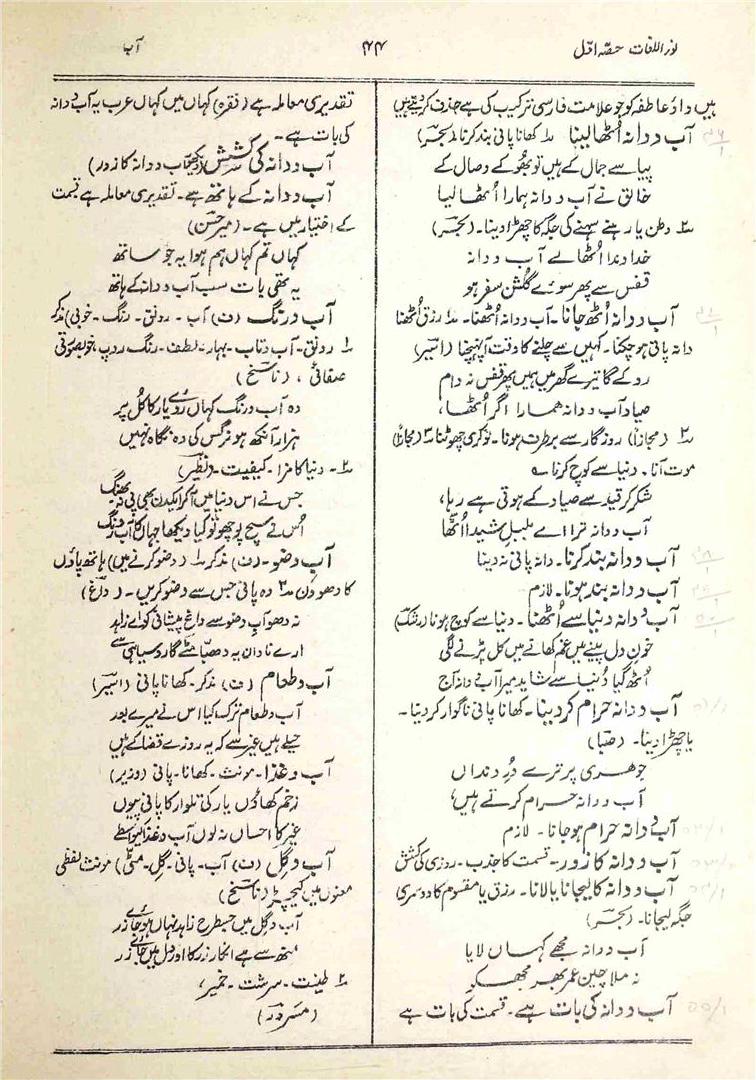 نور اللغات حصّہ اوّل
۴۴
آب
ہیں داؤ عاطفہ کو جو علامت فارسی ترکیب کی ہے حذف کر دیتے ہیں
آب و دانہ اُٹھا لینا ۱؎ کھانا پانی بند کرنا (بحرؔ)
پیاسے جمال کے ہیں تو بھوکے وصال کے
خالق نے آب و دانہ ہمارا اُٹھا لیا
۲؎ وطن یا رہنے سہنے کی جگہ کا چھڑا دینا۔ (بحرؔ)
خداوندا اُٹھا لے آب و دانہ
قفس سے پھر سوئے گلشن سفر ہو
آب و دانہ اُٹھ جانا۔ آب و دانہ اُٹھنا۔ ۱؎ رزق اُٹھنا
دانہ پانی ہو چکنا۔ کہیں سے چلنے کا وقت آ پہنچنا (اسیرؔ)
روکے گا تیرے گھر میں ہمیں پھر قفس نہ دام
صیاد آب و دانہ ہمارا اگر اُٹھا،
۲؎ (مجازاً) روزگار سے برطرف ہونا۔ نوکری چھوٹنا ۳؎ (مجازاً)
موت آنا۔ دنیا سے کوچ کرنا ؎
شکر کر قید سے صیاد کے ہوتی ہے رہا،
آب و دانہ ترا اے بلبل شیدا اُٹھا
آب و دانہ بند کرنا۔ دانہ پانی نہ دینا
آب و دانہ بند ہونا۔ لازم
آب و دانہ دنیا سے اُٹھنا۔ دنیا سے کوچ ہونا (رشکؔ)
خونِ دل پینے میں غم کھانے میں کل پڑنے لگی
اُٹھ گیا دُنیا سے شاید میرا آب و دانہ آج
آب و دانہ حرام کر دینا۔ کھانا پانی ناگوار کر دینا۔
یا چھڑا دینا۔ (صبا)
جوہری پر ترے دُرِ دنداں
آب و دانہ حرام کرتے ہیں،
آب و دانہ حرام ہو جانا۔ لازم
آب و دانہ کا زور۔ قسمت کا جذب۔ روزی کی کشش
آب و دانہ کا لیجانا یا لانا۔ رزق یا مقسوم کا دوسری
جگہ لیجانا۔ (بحرؔ)
آب و دانہ مجھے کہاں لایا
نہ ملا چین عمر بھر مجھ کو
آب و دانہ کی بات ہے۔ قسمت کی بات ہے
تقدیری معاملہ ہے (فقرہ) کہاں میں کہاں عرب یہ آب و دانہ
کی بات ہے۔
آب و دانہ کی کشش (دیکھو آب و دانہ کا زور)
آب و دانہ کے ہاتھ ہے۔ تقدیری معاملہ ہے قسمت
کے اختیار میں ہے۔ (میر حسنؔ)
کہاں تم کہاں ہم ہوا یہ جو ساتھ
یہ تھی بات سب آب و دانہ کے ہاتھ
آب و رنگ (ف) آب۔ رونق۔ رنگ۔ خوبی) مذکر
۱؎ رونق۔ آب و تاب۔ بہار۔ لطف۔ رنگ روپ، خوبصورتی
صفائی، (ناسخؔ)
وہ آب و رنگ کہاں روئے یار کا گل پر
ہزار آنکھ ہو نرگس کی وہ نگاہ نہیں
۲؎۔ دنیا کا مزا۔ کیفیت۔ (نظیرؔ)
جس نے اس دنیا میں آ کر ایکدن بھی پی نہ بھنگ
اُس نے سچ پوچھو تو کیا دیکھا جہاں کا آب و رنگ
آبِ وضو۔ (ف) مذکر ۱؎ (وضو کرنے میں) ہاتھ پاؤں
کا دھوون ۲؎ وہ پانی جس سے وضو کریں۔ (داغؔ)
نہ دھو آبِ وضو سے داغِ پیشانی کو اے زاہد
ارے نادان یہ دھبّا مٹے گا رو سیاہی سے
آب و طعام (ف) مذکر۔ کھانا پانی (اسیرؔ)
آب و طعام ترک کیا اس نے میرے بعد
حیلے ہیں غیر سے کہ یہ روزے قضا کے ہیں
آب و غذا۔ مونث۔ کھانا۔ پانی (وزیر)
زخم کھاؤں یار کی تلوار کا پانی پیوں
غیر کا احساں نہ لوں آب و غذا کیواسطے
آب و گِل (ف) آب۔ پانی۔ گِل۔ مٹی) مونث لفظی
معنوں میں کیچڑ (ناسخؔ)
آب و گل میں جسطرح زاہد نہاں ہو جائے زر
مُنھ سے ہے انکار زر کا اور دل میں جائے زر
۲؎ طینت۔ سرشت۔ خمیر،
(مسرورؔ)